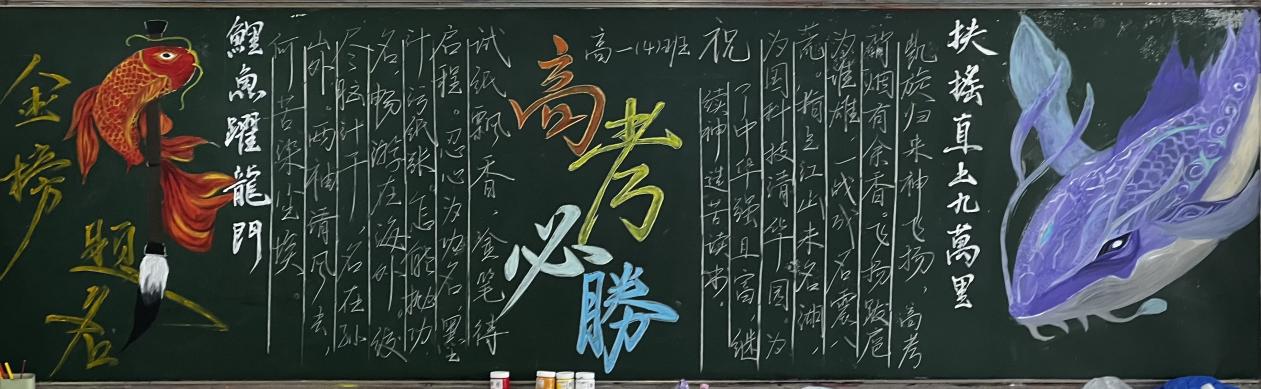 扶摇直上九萬里
凯旋归来神飞扬，高考
硝烟有余香。飞扬跋扈
为谁雄，一战成名震八
荒。指点江山未名湖，
为国科技清华园。为
了中华强且富，继
续神造苦读书。
祝
高一（14）班
高考必勝
试纸飘香，金笔待
启程。忍心为功名，墨
汁污纸张。怎能抛功
名，畅游在海外，绞
尽脑汁千，名在孙
山外。两袖清风去，
何苦染尘埃
鯉魚躍龍門
金榜题名